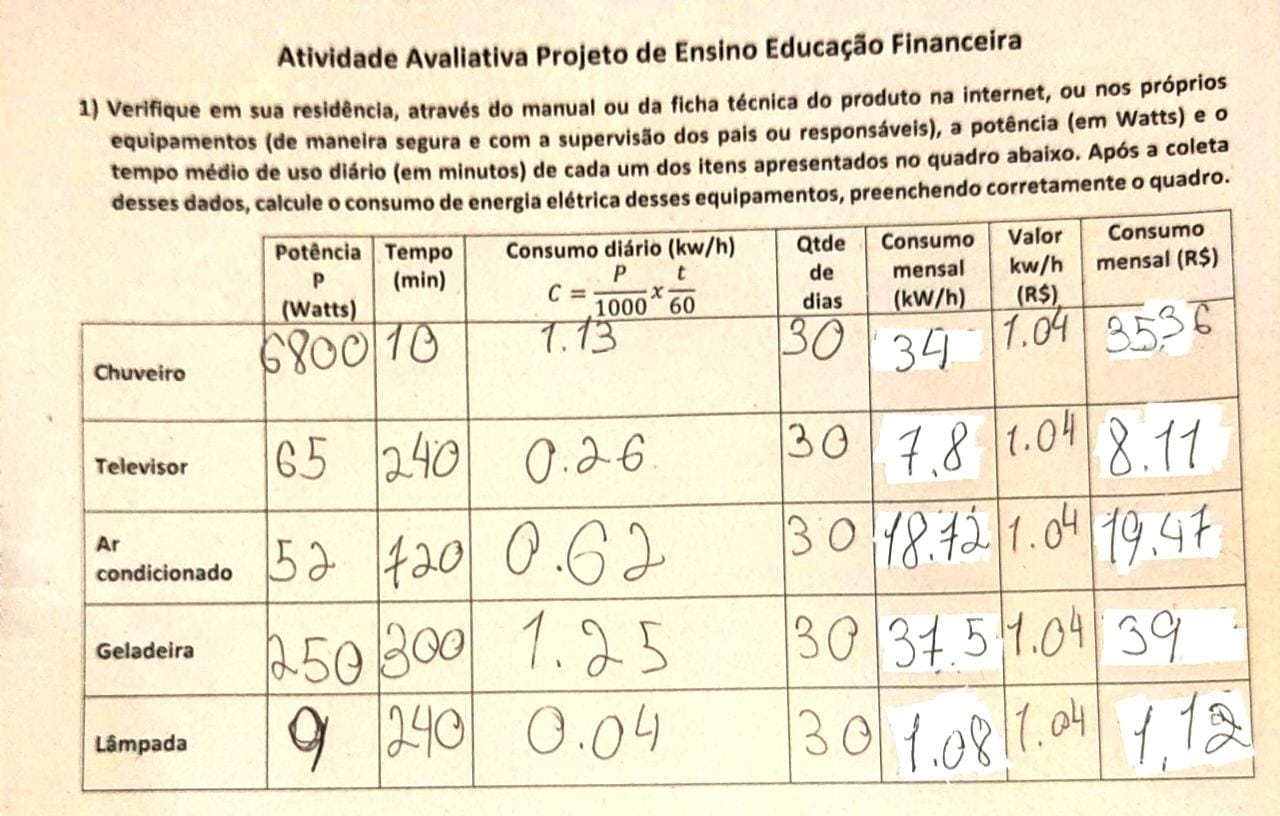 Atividade Avaliativa Projeto de Ensino Educação Financeira
1) Verifique em sua residência, através do manual ou da ficha técnica do produto na internet, ou nos próprios
equipamentos (de maneira segura e com a supervisão dos pais ou responsáveis), a potência (em Watts) e o
tempo médio de uso diário (em minutos) de cada um dos itens apresentados no quadro abaixo. Após a coleta
desses dados, calcule o consumo de energia elétrica desses equipamentos, preenchendo corretamente o quadro.
Potência P (Watts) Tempo (min) Consumo diário (kw/h) C = P/1000 x t/60 Qtde de dias Consumo mensal (kW/h) Valor kw/h (R$) Consumo mensal (R$)
Chuveiro 6800 10 1.13 30 34 1.04 35,36
Televisor 65 240 0.26 30 7.8 1.04 8.11
Ar condicionado 52 720 0.62 30 18.72 1.04 19.47
Geladeira 250 300 1.25 30 37.5 1.04 39
Lâmpada 9 240 0.04 30 1.08 1.04 1,12